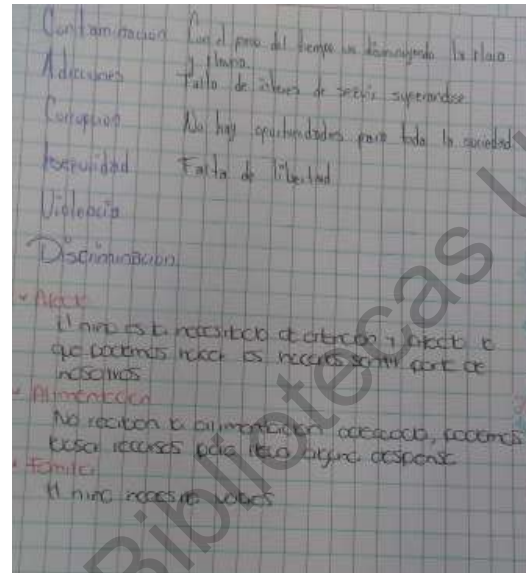 Contaminación Con el paso del tiempo va disminuyendo la flora
y fauna.
Adicciones Falta de interes de seguir superandose
Corrupcion No hay oportunidades para toda la sociedad
Inseguridad Falta de libertad
Violencia
Discriminacion
Afecto
El niño esta necesitado de atencion y afecto lo
que podemos hacer es hacerles sentir parte de
nosotros
Alimentación
No reciben la alimentación adecuada, podemos
recursos para
Familia
El niño necesita
Bibliotecas U